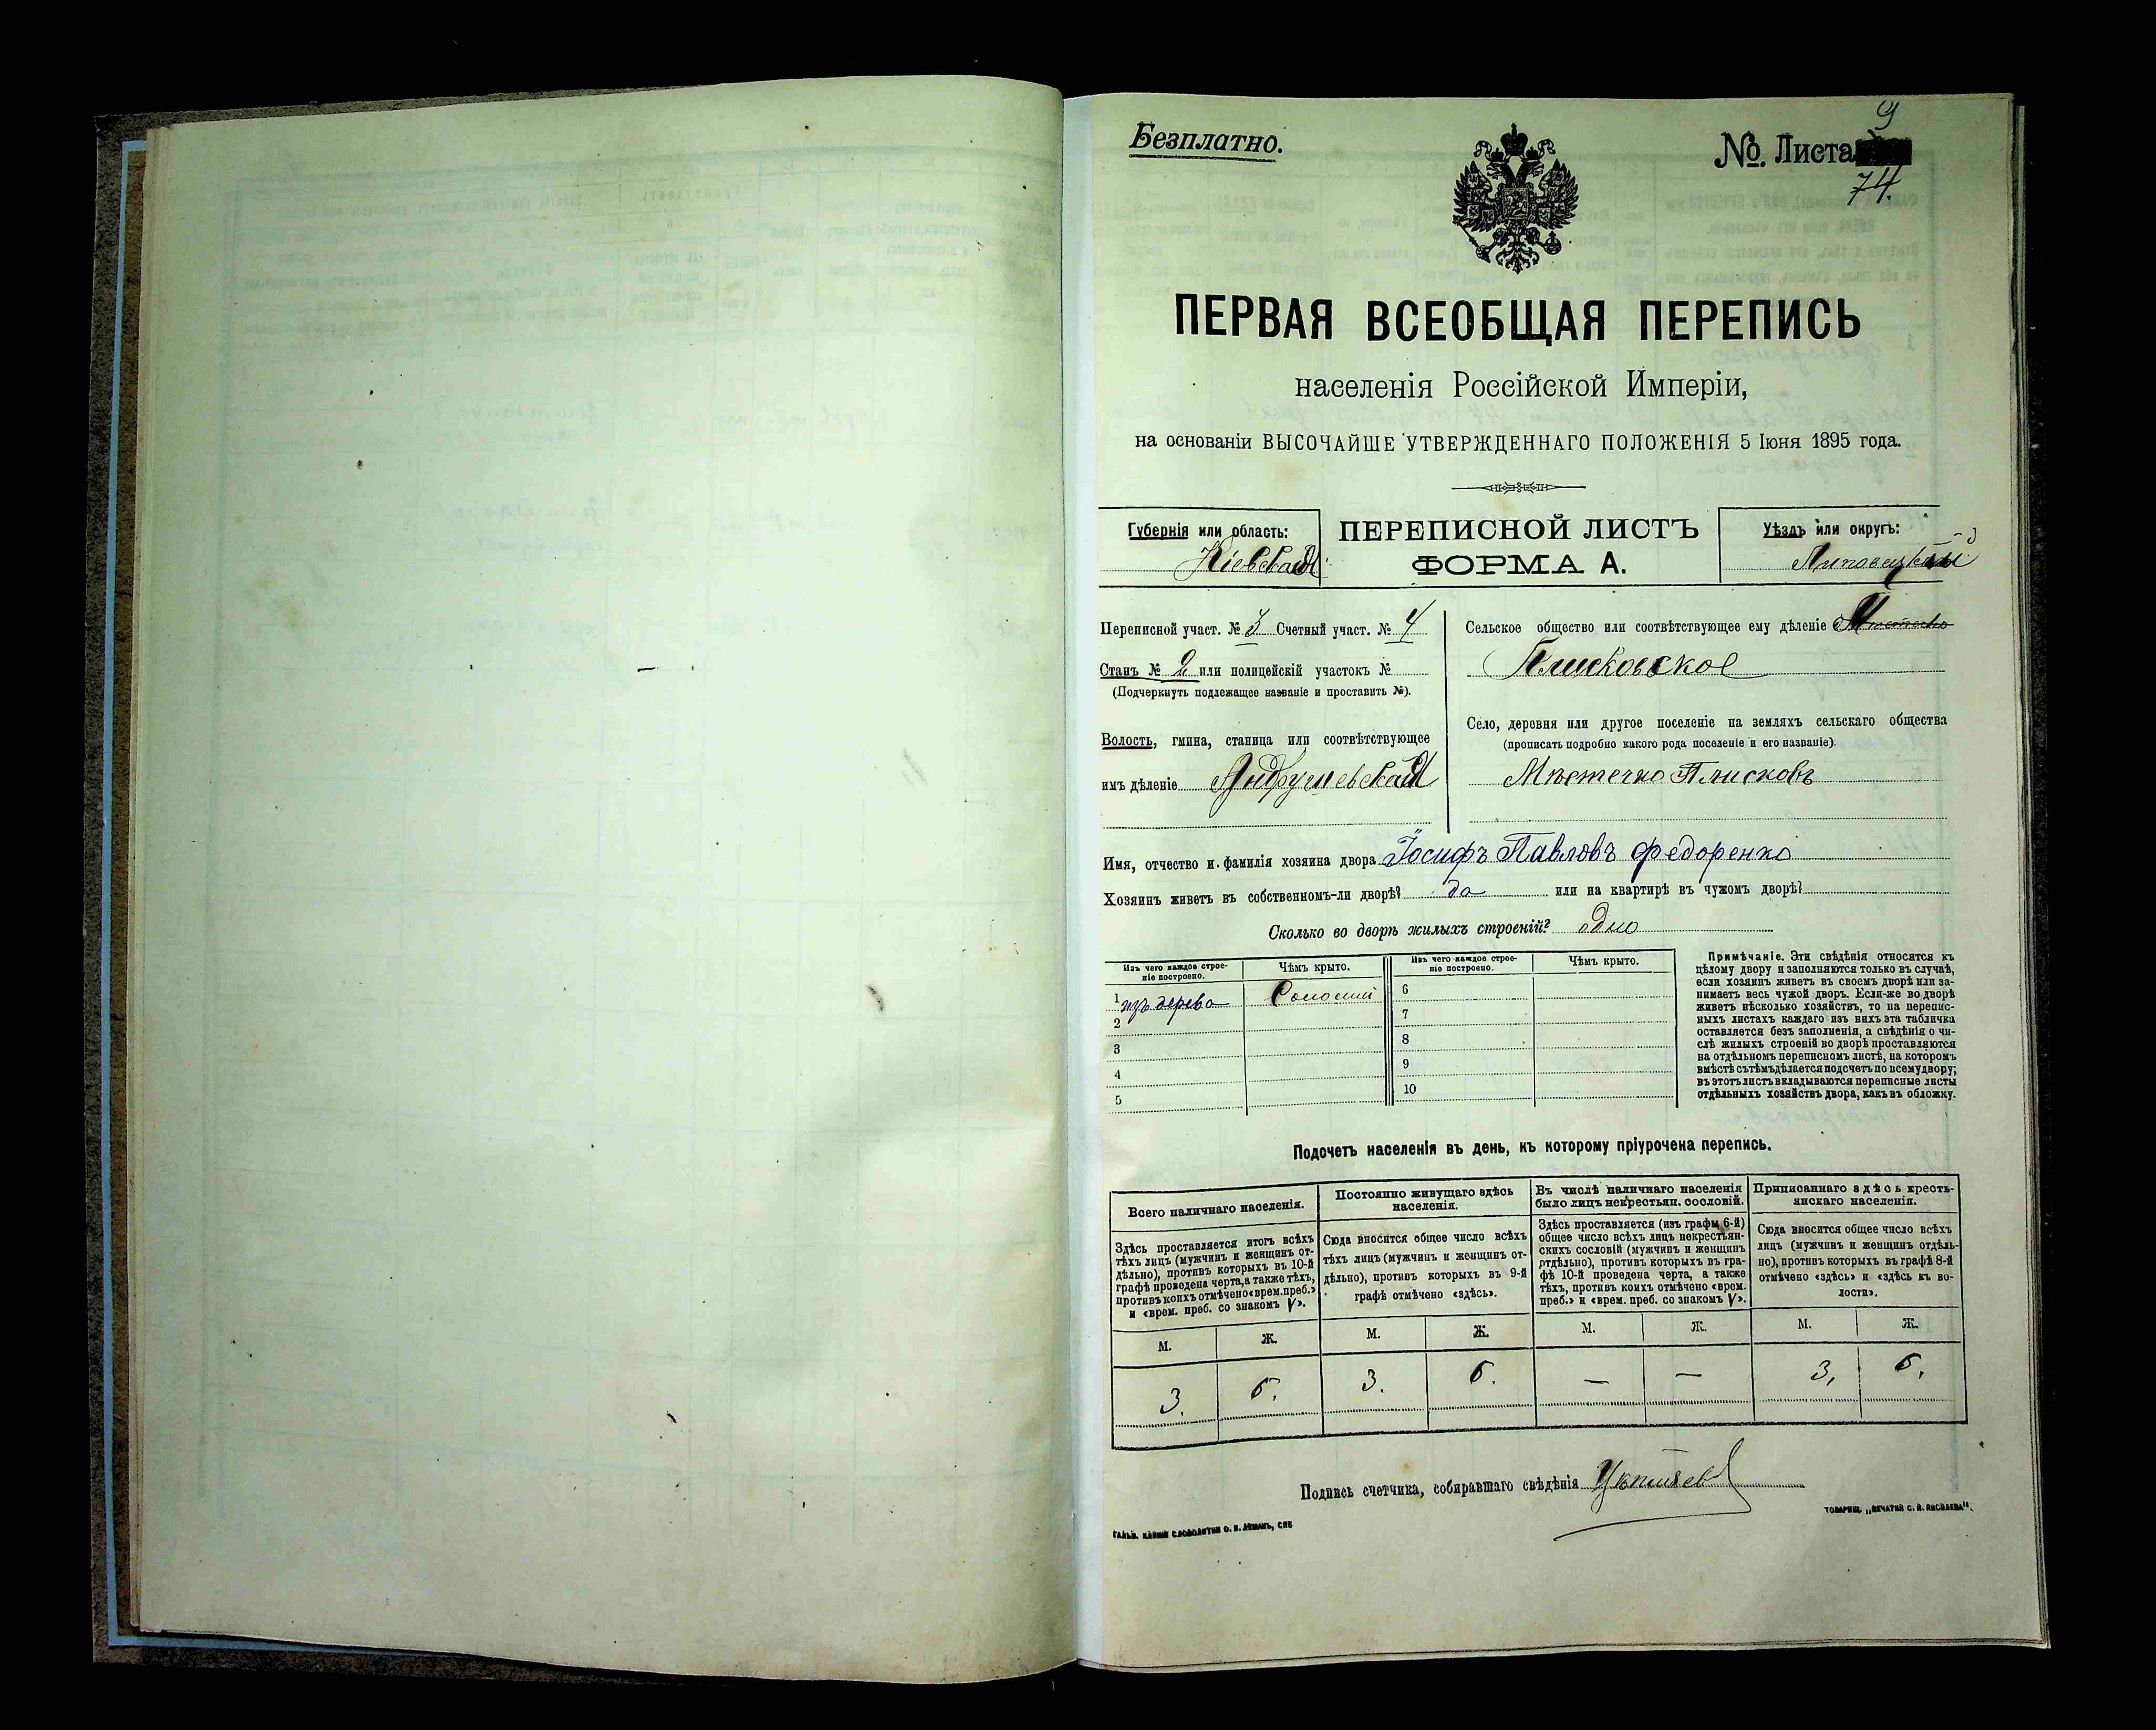 9
Безплатно.
№ Листа
74.
ПЕРВАЯ ВСЕОБЩАЯ ПЕРЕПИСЬ
населенія Россійской Имперіи,
на основаніи ВЫСОЧАЙШЕ УТВЕРЖДЕННАГО ПОЛОЖЕНІЯ 5 Іюня 1895 года.
Губернія или область:
Кіевская
ПЕРЕПИСНОЙ ЛИСТЪ
ФОРМА А.
Уѣздъ или округъ:
Липовецкій
Переписной участ. № 3 Счетный участ. № 4
Станъ № 2 или полицейскій участокъ №
(Подчеркнуть подлежащее названіе и проставить №).
Волость, гмина, станица или соотвѣтствующее
имъ дѣленіе Андрушевская
Сельское общество или соотвѣтствующее ему дѣленіе
Плисковское
Село, деревня или другое поселеніе на земляхъ сельскаго общества
(прописать подробно какого рода поселеніе и его названіе).
Мѣстечко Плисковъ
Имя, отчество и фамилія хозяина двора Іосифъ Павловъ Федоренко
Хозяинъ живетъ въ собственномъ-ли дворѣ? да или на квартирѣ въ чужомъ дворѣ?
Сколько во дворѣ жилыхъ строеній? одно
Изъ чего каждое строе-
ніе построено.
Чѣмъ крыто.
Изъ чего каждое строе-
ніе построено.
Чѣмъ крыто.
1 изъ дерева Соломой 6
2 7
3 8
4 9
5 10
Примѣчаніе. Эти свѣдѣнія относятся къ
цѣлому двору и заполняются только въ случаѣ,
если хозяинъ живетъ въ своемъ дворѣ или за-
нимаетъ весь чужой дворъ. Если-же во дворѣ
живетъ нѣсколько хозяйствъ, то на перепис-
ныхъ листахъ каждаго изъ нихъ эта табличка
оставляется безъ заполненія, а свѣдѣнія о чи-
слѣ жилыхъ строеній во дворѣ проставляются
на отдѣльномъ переписномъ листѣ, на которомъ
вмѣстѣ съ тѣмъ дѣлается подсчетъ по всему двору;
въ этотъ листъ вкладываются переписные листы
отдѣльныхъ хозяйствъ двора, какъ въ обложку.
Подсчетъ населенія въ день, къ которому пріурочена перепись.
Всего наличнаго населенія.
Здѣсь проставляется итогъ всѣхъ
тѣхъ лицъ (мужчинъ и женщинъ от-
дѣльно), противъ которыхъ въ 10-й
графѣ проведена черта, а также тѣхъ,
противъ коихъ отмѣчено «врем. преб.»
и «врем. преб. со знакомъ V».
Постоянно живущаго здѣсь
населенія.
Сюда вносится общее число всѣхъ
тѣхъ лицъ (мужчинъ и женщинъ от-
дѣльно), противъ которыхъ въ 9-й
графѣ отмѣчено «здѣсь».
Въ числѣ наличнаго населенія
было лицъ некрестьян. сословій.
Здѣсь проставляется (изъ графы 6-й)
общее число всѣхъ лицъ некрестьян-
скихъ сословій (мужчинъ и женщинъ
отдѣльно), противъ которыхъ въ гра-
фѣ 10-й проведена черта, а также
тѣхъ, противъ коихъ отмѣчено «врем.
преб.» и «врем. преб. со знакомъ V».
Приписаннаго здѣсь кресть-
янскаго населенія.
Сюда вносится общее число всѣхъ
лицъ (мужчинъ и женщинъ отдѣль-
но), противъ которыхъ въ графѣ 8-й
отмѣчено «здѣсь» и «здѣсь къ во-
лости».
М. Ж. М. Ж. М. Ж. М. Ж.
3. 6. 3. 6. — — 3, 6.
Подпись счетчика, собиравшаго свѣдѣнія